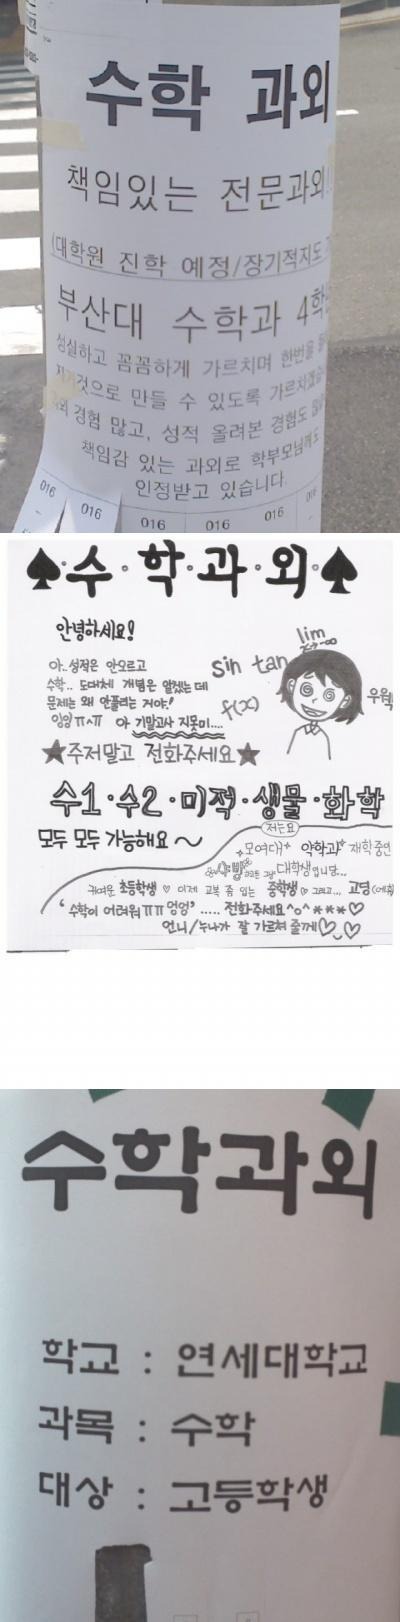 수학 과외
책임있는 전문과외!!
(대학원 진학 예정/장기적지도
부산대 수학과 4학
성실하고 꼼꼼하게 가르치며 한번을
것으로 만들 수 있도록 가르치겠습
경험 많고, 성적 올려본 경험도
책임감 있는 과외로 학부모님께도
인정받고 있습니다.
016 016 016 016 016 016
♠·수·학·과·외·♠
안녕하세요!
lim
sin tan
f(x)
우웩
아.. 성적은 안오르고
수학.. 도대체 개념은 알겠는데
문제는 왜 안풀리는 거야!
잉잉 ㅠㅅㅠ 아 기말고사 지못미....
★주저말고 전화주세요★
수1·수2·미적·생물·화학
모두 모두 가능해요~
저는요
모여대 약학과 재학중인
대학생입니당...
귀여운 초등학생♡ 이제 교복 좀 입는 중학생♡ 그리고... 고딩
'수학이 어려워ㅠㅠ 엉엉' ..... 전화주세요^o^***♡
언니/누나가 잘 가르쳐 줄께♡♡
수학과외
학교 : 연세대학교
과목 : 수학
대상 : 고등학생